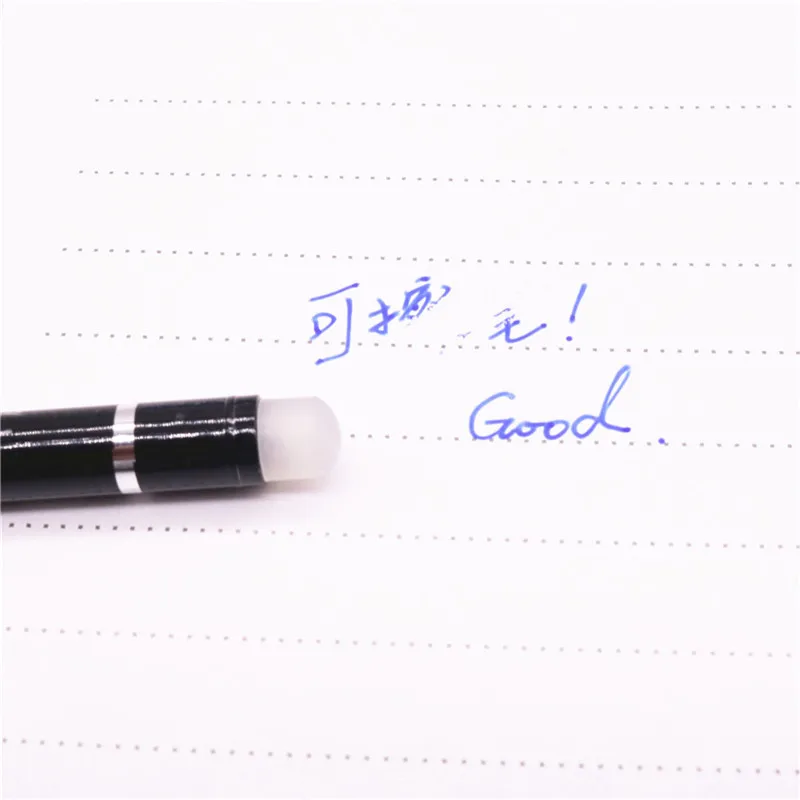 可擦 毛!
Good.